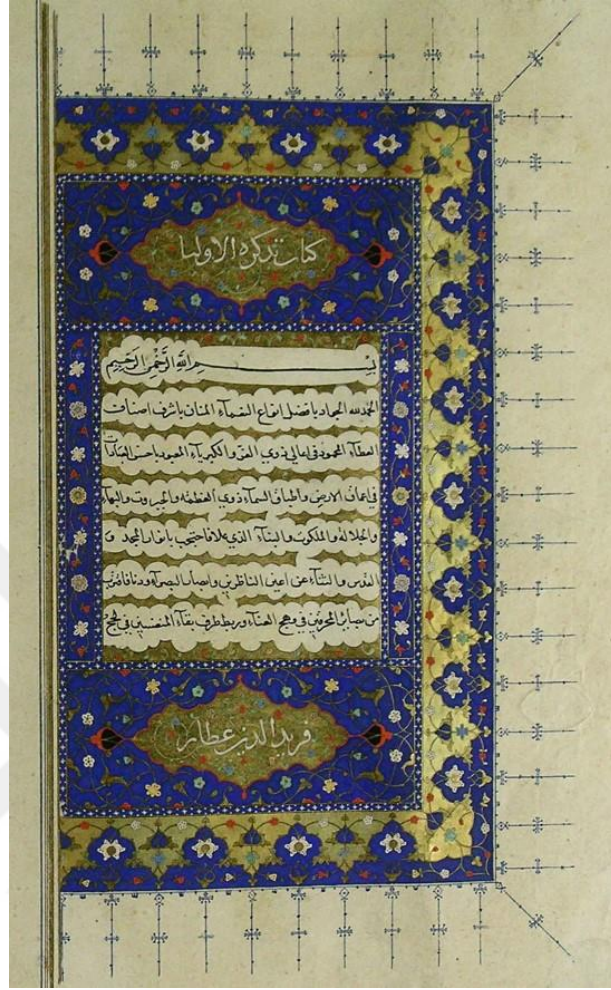 كتاب تذكرة الاوليا
بسم الله الرحمن الرحيم
الحمد لله الجواد بافضل انواع النعمآء المنان باشرف اصناف
العطآء المحمود في اعالي ذروي العز والكبريآء المعبود باحسن العبادات
في اعماق الارض واطباق السمآء ذوي العظمة والجبروت والبهآء
والجلالة والملكوت والسنآء الذي علا فاحتجب بانوار المجد و
القدس والثنآء عن اعين الناظرين وابصار البصرآء ودنا
من بصائر المحرقين في وهج العنآء وربط طرف بقآء المنغمسين في لجج
فريد الدين عطار